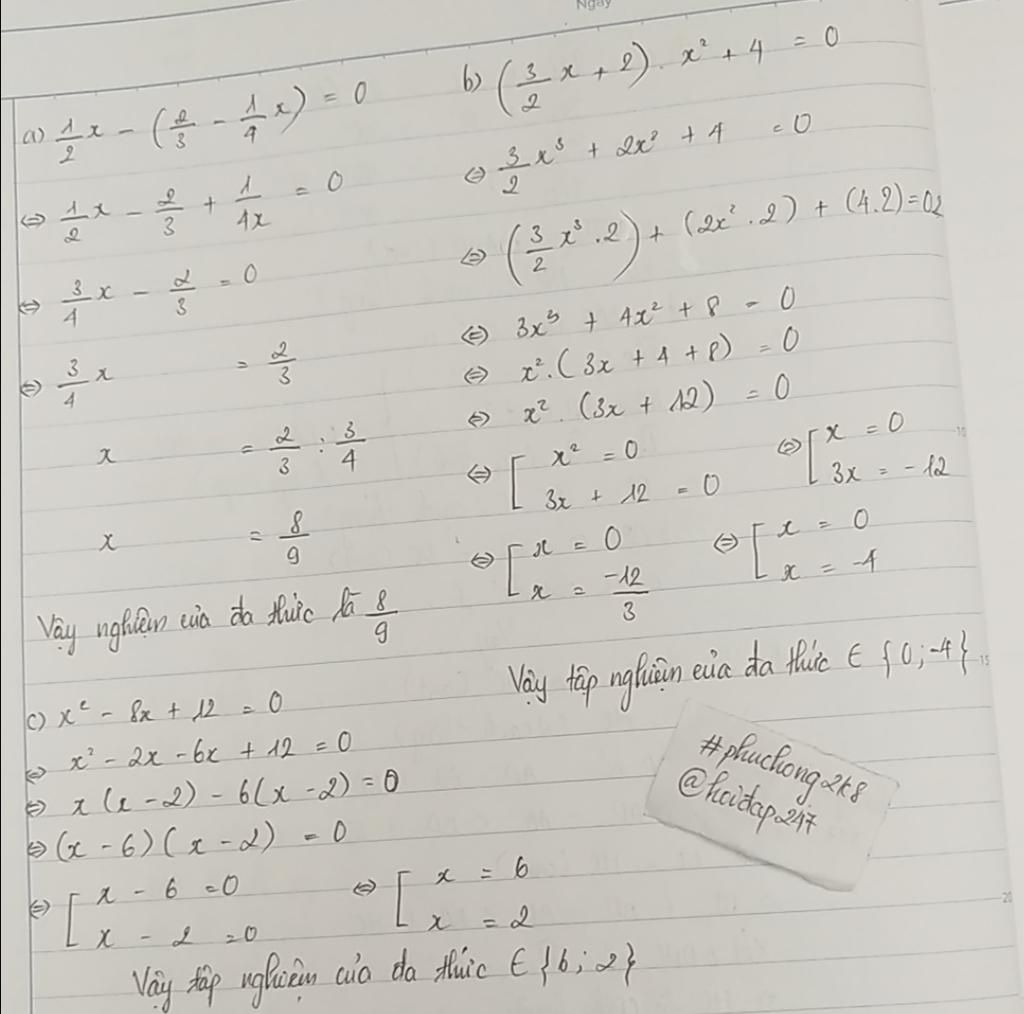 Ngày
a) 1/2 x - (2/3 - 1/4 x) = 0
⇔ 1/2 x - 2/3 + 1/4x = 0
⇔ 3/4 x - 2/3 = 0
⇔ 3/4 x = 2/3
x = 2/3 : 3/4
x = 8/9
Vậy nghiệm của đa thức là 8/9
b) (3/2 x + 2) . x² + 4 = 0
⇔ 3/2 x³ + 2x² + 4 = 0
⇔ (3/2 x³ . 2) + (2x² . 2) + (4.2) = 0.2
⇔ 3x³ + 4x² + 8 = 0
⇔ x² . (3x + 4 + 8) = 0
⇔ x² . (3x + 12) = 0
⇔ [ x² = 0 ⇔ [ x = 0
3x + 12 = 0 3x = -12
⇔ [ x = 0 ⇔ [ x = 0
x = -12/3 x = -4
Vậy tập nghiệm của đa thức ∈ {0; -4}
c) x² - 8x + 12 = 0
⇔ x² - 2x - 6x + 12 = 0
⇔ x (x - 2) - 6(x - 2) = 0
⇔ (x - 6) (x - 2) = 0
⇔ [ x - 6 = 0 ⇔ [ x = 6
x - 2 = 0 x = 2
Vậy tập nghiệm của đa thức ∈ {6; 2}
#phuchong2k8
@hoidap247
10
15
20